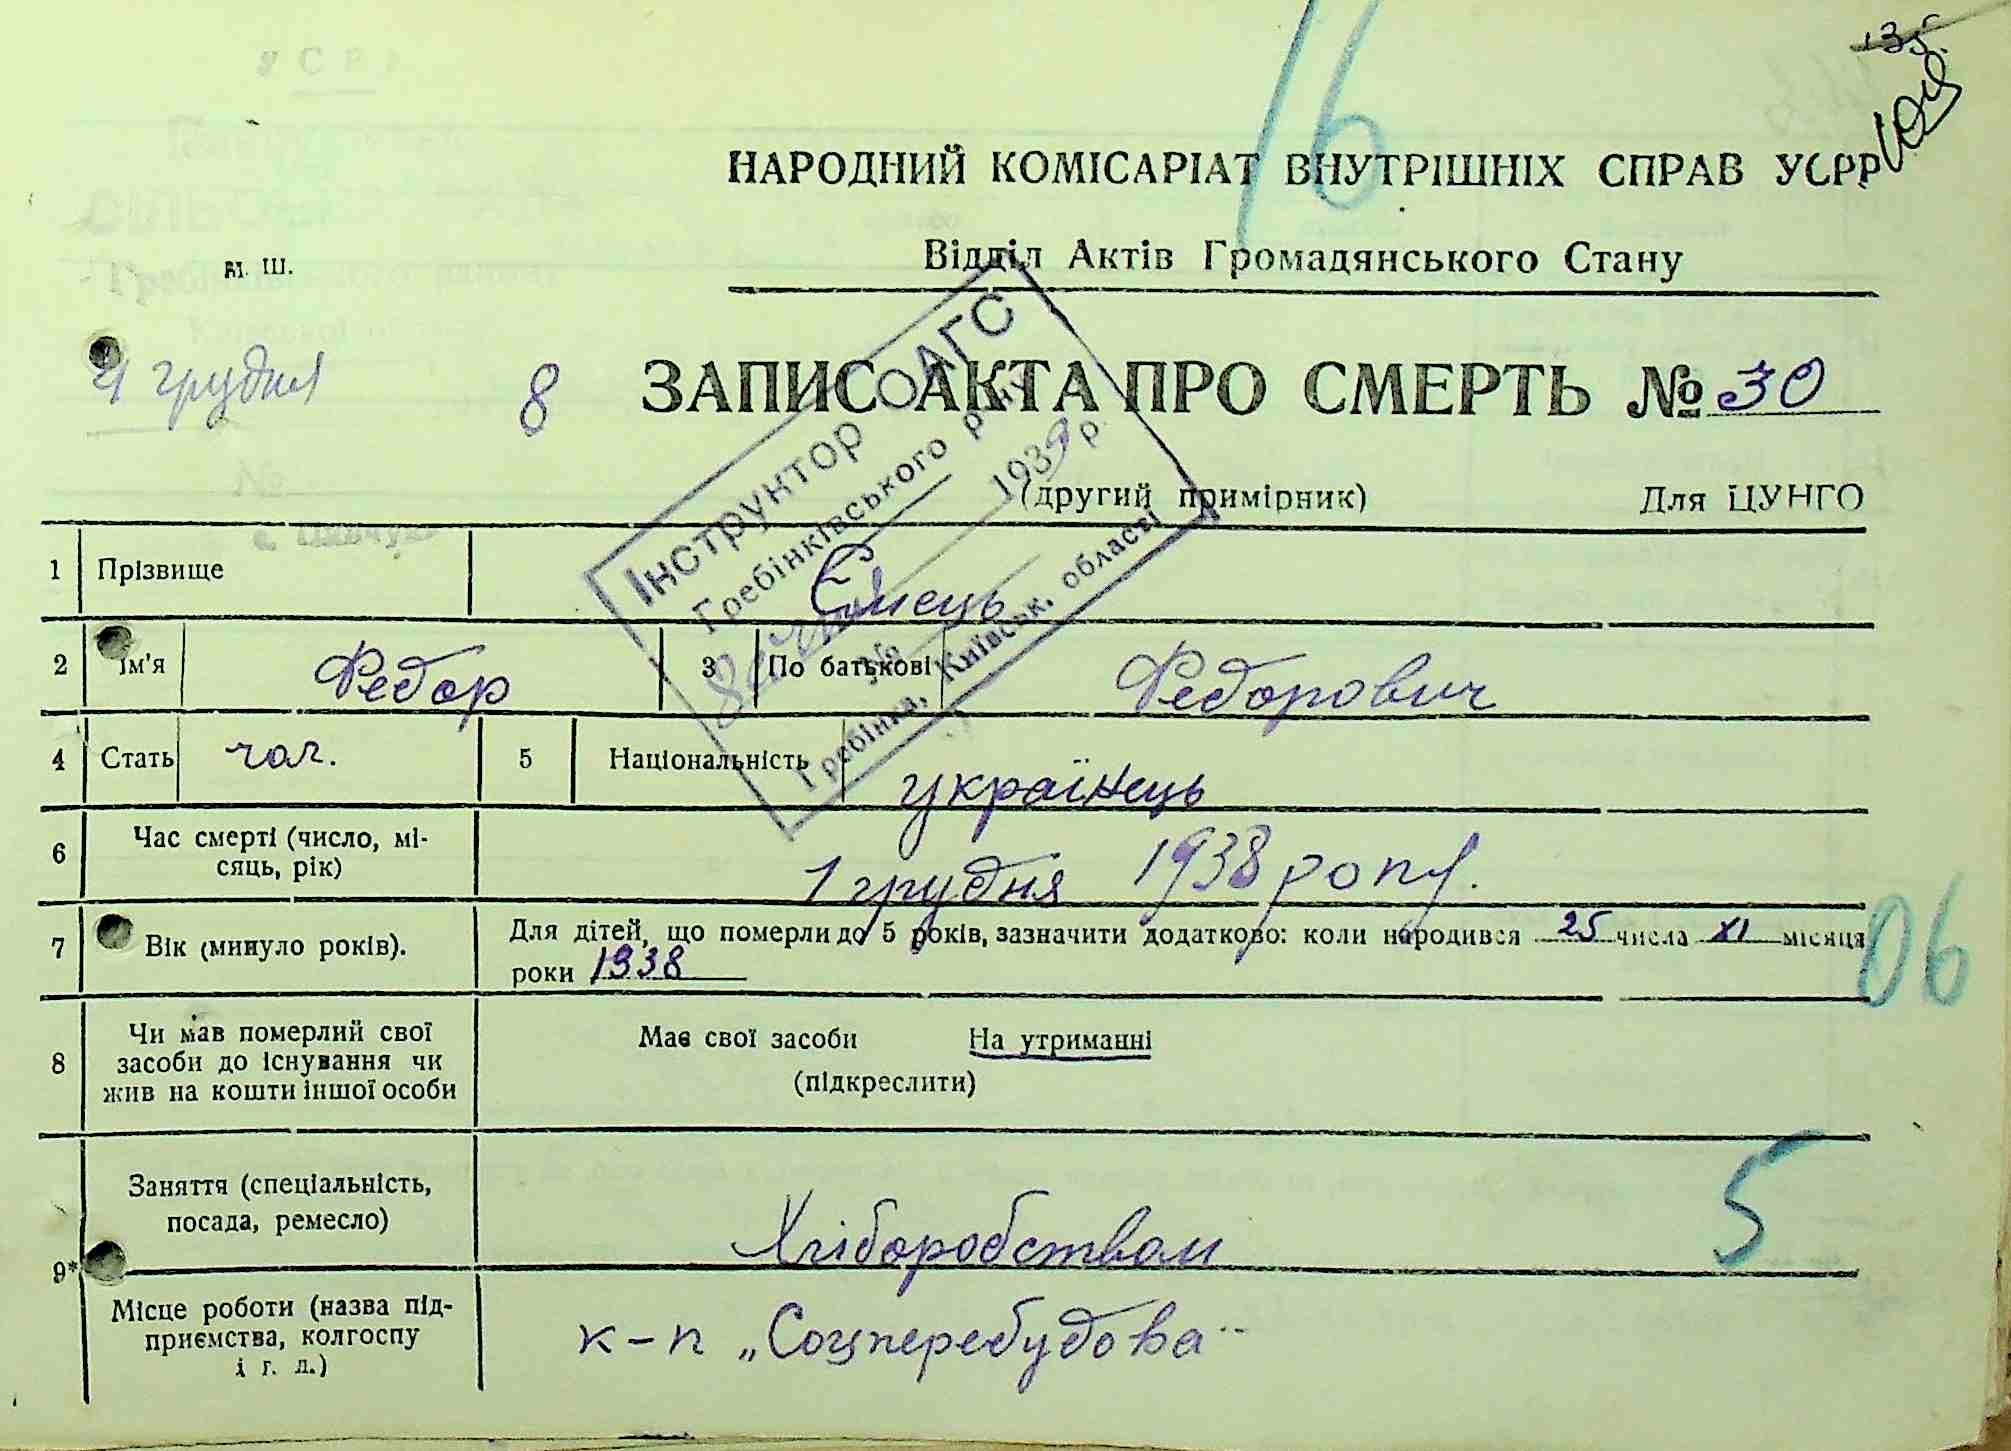 135.
16
НАРОДНИЙ КОМІСАРІАТ ВНУТРІШНІХ СПРАВ УСРР
Відділ Актів Громадянського Стану
М. Ш.
4 грудня 8
ЗАПИС АКТА ПРО СМЕРТЬ № 30
(другий примірник) Для ЦУНГО
Інструктор ОАГС
Гребінківського р-ну
1939 р.
№
Гребінка, Київськ. області
1 Прізвище Ємець
2 Ім'я Федор 3 По батькові Федорович
4 Стать чол. 5 Національність українець
6 Час смерті (число, мі-
сяць, рік) 1 грудня 1938 року.
7 Вік (минуло років). Для дітей, що померли до 5 років, зазначити додатково: коли народився 25 числа XI місяця
роки 1938
06
8 Чи мав померлий свої
засоби до існування чи
жив на кошти іншої особи
Має свої засоби На утриманні
(підкреслити)
5
9* Заняття (спеціальність,
посада, ремесло) Хліборобством
Місце роботи (назва під-
приємства, колгоспу
і г. д.)
к-п „Соцперебудова"